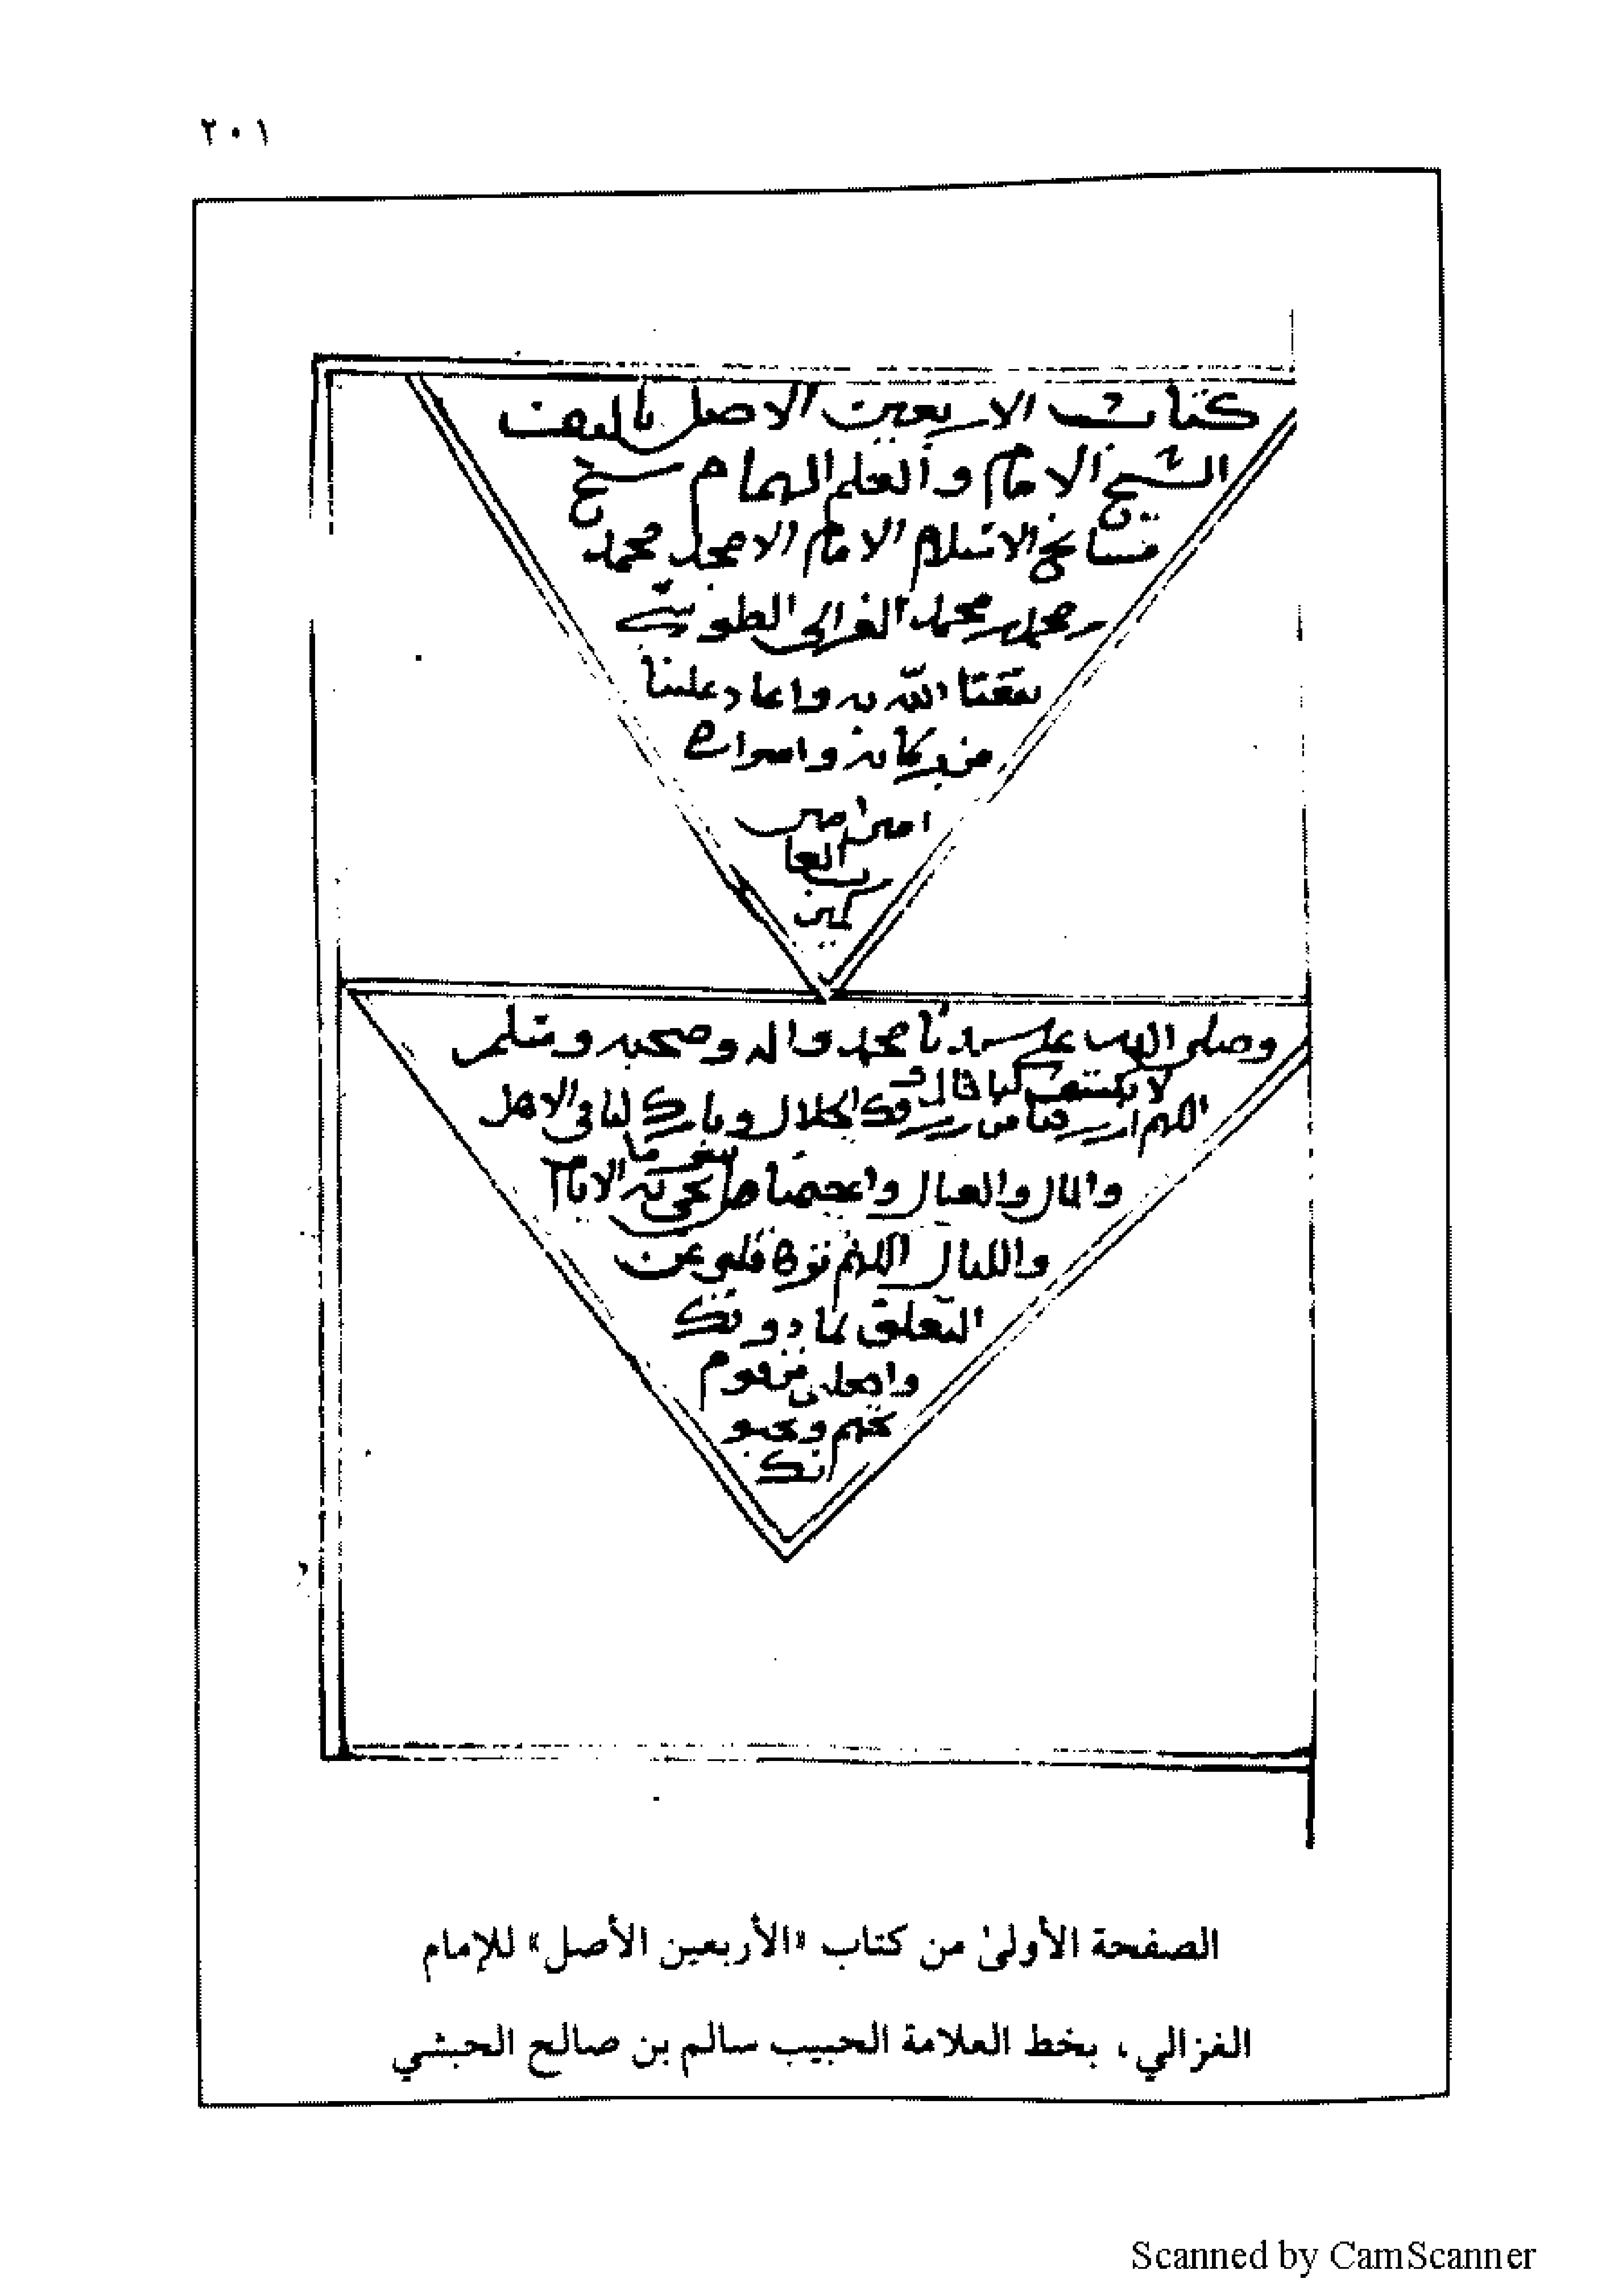 ٢٠١
كتاب الاربعين الاصل تاليف
الشيخ الامام والعلم الهمام شيخ
مشايخ الاسلام الامام الامجد محمد
محمد الغزالي الطوسي
نفعنا الله به واعاد علينا
من بركاته واسراره
امين امين
العا
لمين
وصلى الله على سيدنا محمد واله وصحبه وسلم
اللهم ارزقنا من رزقك الحلال وبارك لنا في الاهل
والمال والعيال واعصمنا تجري به الايام
والليال اللهم نزه قلوبنا عن
التعلق بما دونك
واجعلنا من قوم
تحبهم ويحبو
نك
الصفحة الأولىٰ من كتاب «الأربعين الأصل» للإمام
الغزالي، بخط العلامة الحبيب سالم بن صالح الحبشي
Scanned by CamScanner